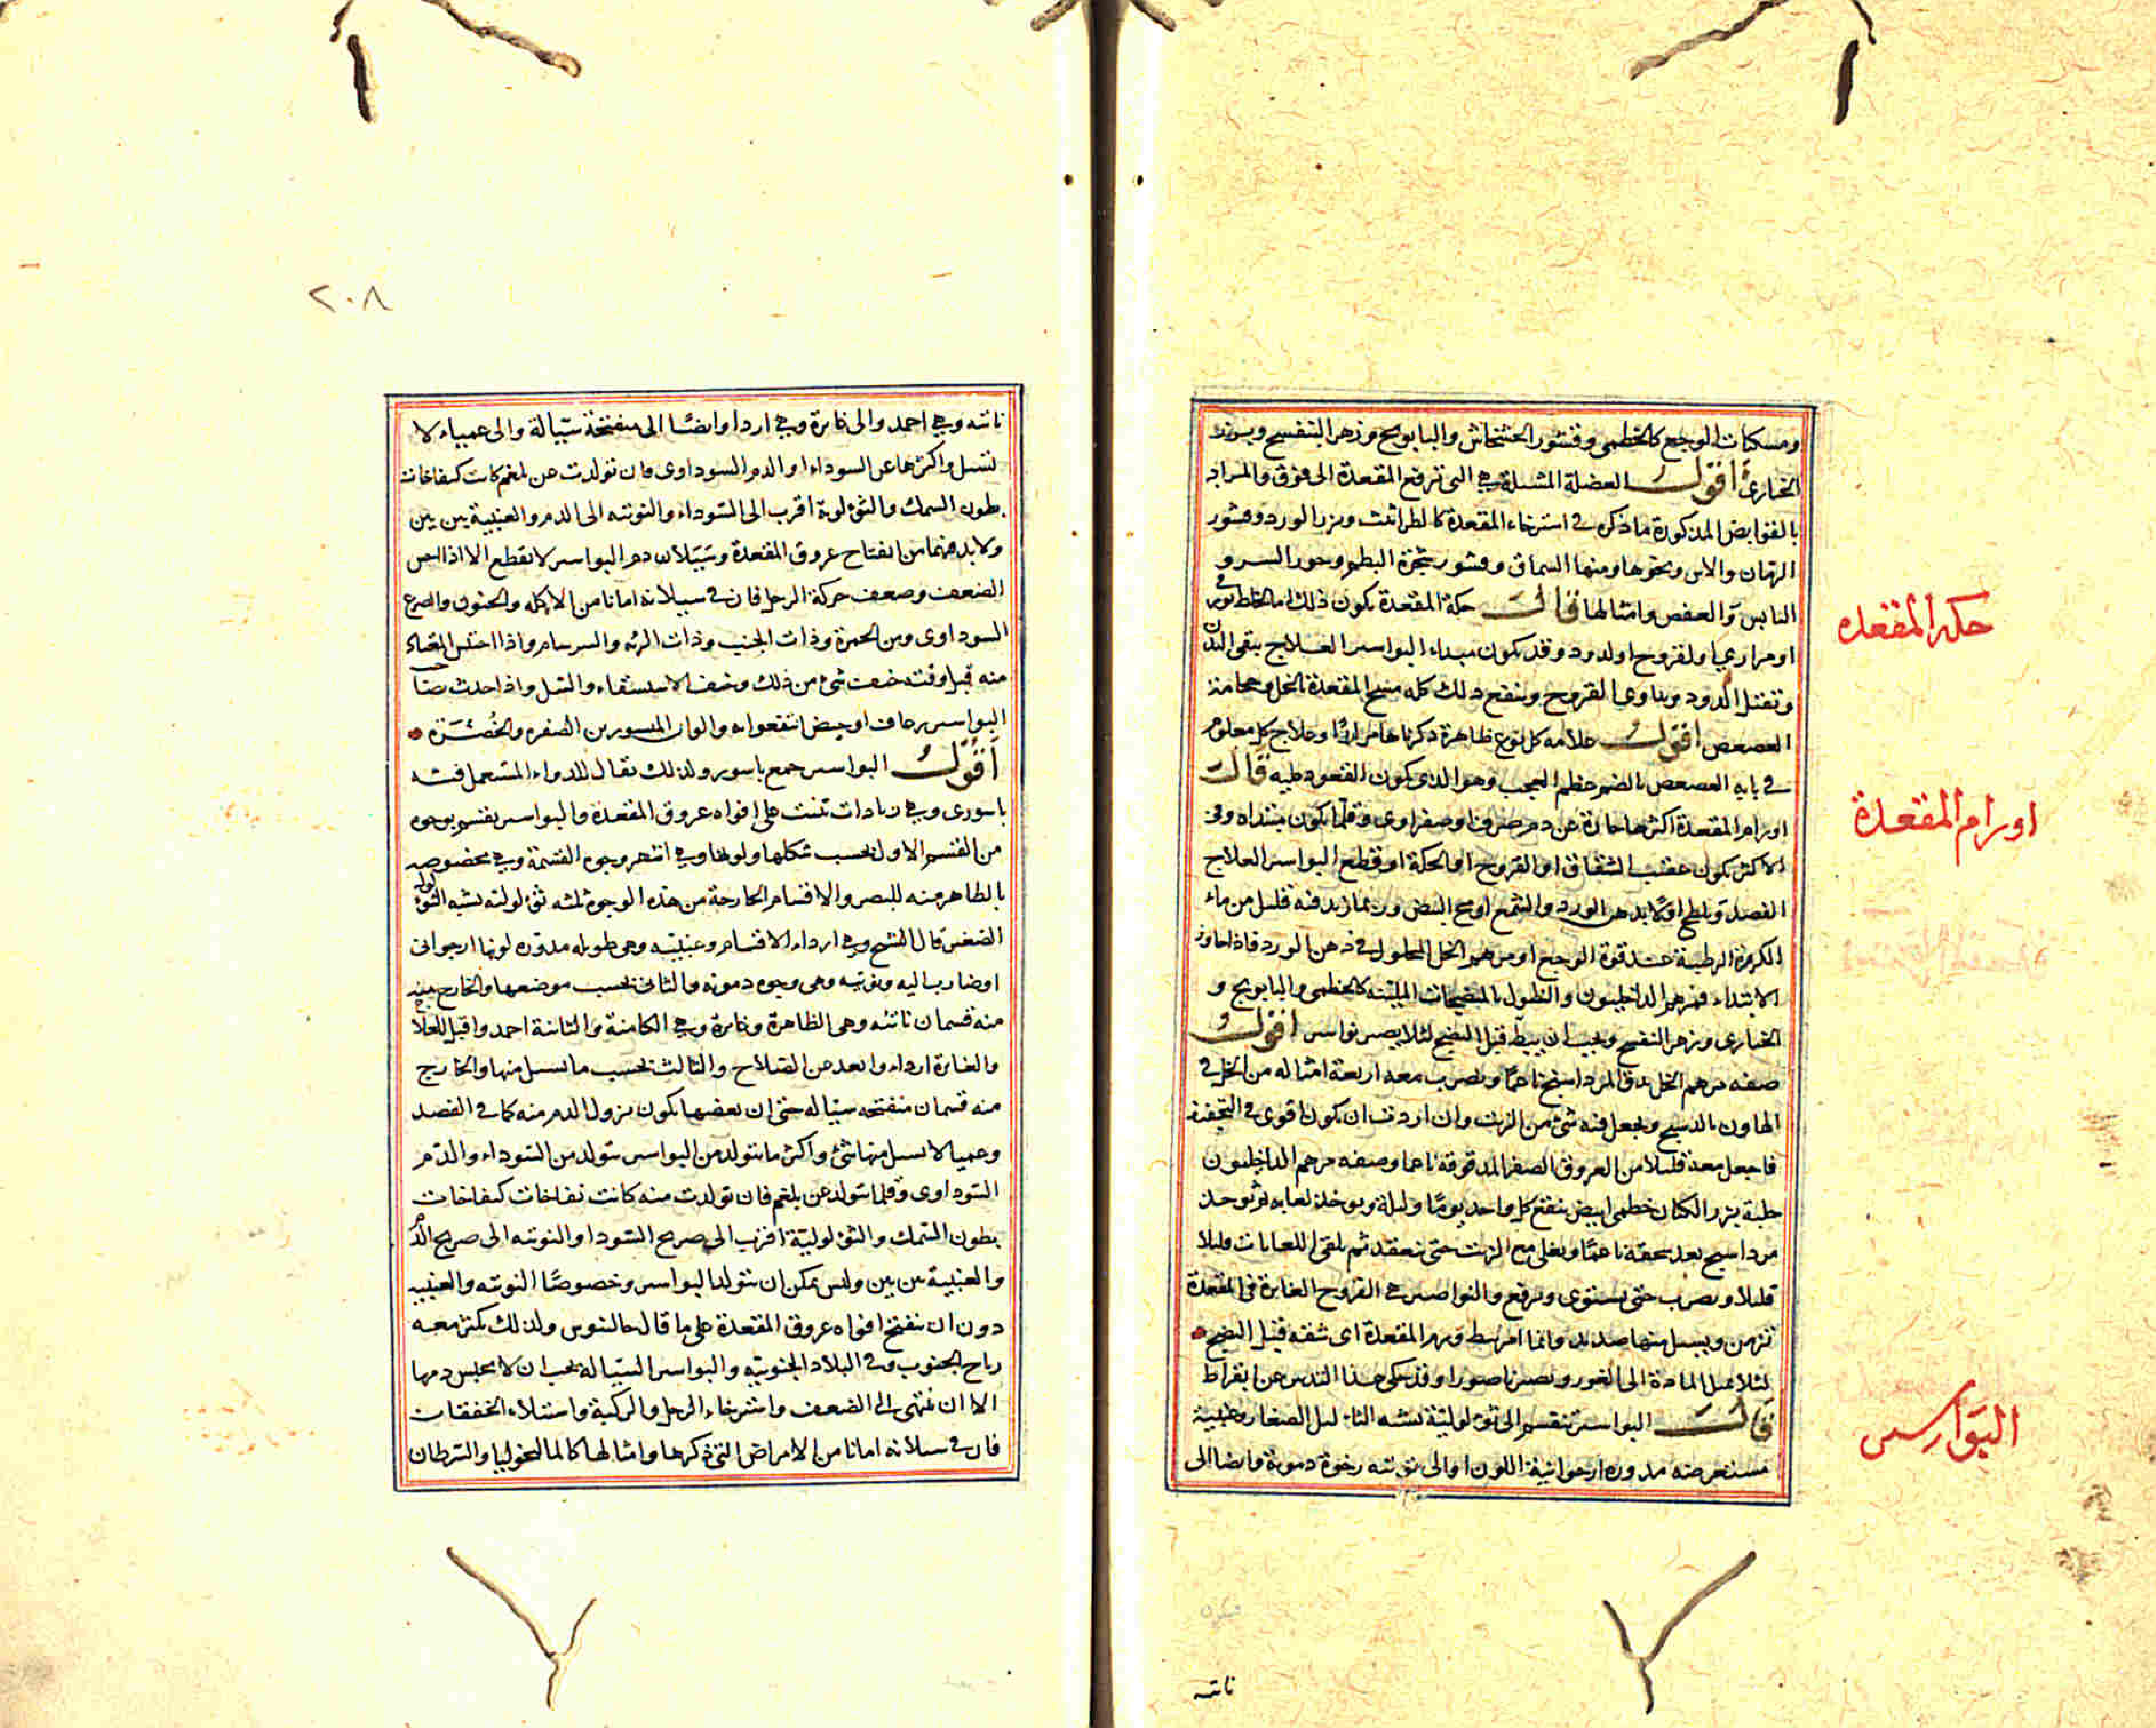 ومسكنات الوجع كالخطمي وقشور الخشخاش والبابونج وزهر البنفسج وبزر
الخبازى أقول العضلة المشيلة هي التي ترفع المقعدة الى فوق والمراد
بالقوابض المذكورة ما ذكره في استرخاء المقعدة كالطراثيث وبزر الورد وقشور
الرمان والاس ونحوها ومنها السماق وقشور شجرة البطم وجوز السرو
اليابس والعفص وامثالها قال حكة المقعدة يكون ذلك اما لخلط بورقي
او مراري او لقروح او لدود وقد يكون مبداء البواسير العلاج ينقى البدن
وتقتل الدود ويداوى القروح وينفع ذلك كله مسح المقعدة بالخل وحجامة
العصعص أقول علامه كل نوع ظاهرة ذكرناها مرارا وعلاج كل معلوم
في بابه العصعص بالضم عظم العجب وهو الذي يكون القعود عليه قال
اورام المقعدة اكثرها حارة عن دم صرف او صفراوى وقلما يكون مبتداه وفي
الاكثر يكون عقيب الشقاق او القروح او الحكة او قطع البواسير العلاج
الفصد ويلطخ اولا بدهن الورد والشمع او مح البيض وربما زيد فيه قليل من ماء
الكزبرة الرطبة عند قوة الوجع او مرهم الخل المحلول في دهن الورد فاذا جاوز
الابتداء فمرهم الداخليون والنطول بالمنضجات الملينه كالخطمي والبابونج و
الخبازى وزهر البنفسج ويجب ان يبط قبل النضج لئلا يصير نواسير أقول
صفه مرهم الخل يدق المرداسنج ناعما ويضرب معه اربعة امثاله من الخل في
الهاون بالدستج ويجعل فيه شئ من الزيت وان اردت ان يكون اقوى في التجفيف
فاجعل معه قليلا من العروق الصفر المدقوقة ناعما وصفه مرهم الداخليون
حلبة بزر الكتان خطمي ابيض ينقع كل واحد يوما وليلة ويوخذ لعابه ثم يوخذ
مرداسنج بعد سحقه ناعما ويغلى مع الزيت حتى ينعقد ثم يلقى اللعابات قليلا
قليلا ويضرب حتى يستوى ويرفع والنواصير هي القروح الغايرة في المقعدة
تزمن ويسيل منها صديد وانما امر ببط ورم المقعدة اى شقه قبل النضج
لئلا تميل المادة الى الغور ويصير ناصورا وقد حكى هذا التدبير عن ابقراط
قال البواسير تنقسم الى ثؤلولية تشبه الثاليل الصغار وعنبية
مستعرضه مدوره ارجوانية اللون او الى توتيه رخوة دموية وايضا الى
ناتيه
حكة المقعده
اورام المقعدة
البواسير
٢٠٨
ناتيه وهي احمد والى غايرة وهي اردا وايضا الى منفتحة سيالة والى عمياء لا
تسيل واكثرها عن السوداء او الدم السوداوى فان تولدت عن بلغم كانت كنفاخات
بطون السمك والثؤلولية اقرب الى السوداء والتوتيه الى الدم والعنبية بين بين
ولا بد فيهما من انفتاح عروق المقعدة وسيلان دم البواسير لا تقطع الا اذا احس
الضعف وضعف حركة الرجل فان في سيلانه امانا من الاكله والجنون والصرع
السوداوى ومن الحمرة وذات الجنب وذات الرئه والسرسام واذا احتبس المعتاد
منه قبل وقته خيف شئ من ذلك وخيف الاستسقاء والسل واذا حدث بصاحب
البواسير رعاف او حيض انتفعوا به والوان المبسورين الصفره والخضرة
أقول البواسير جمع باسور ولذلك يقال للدواء المستعمل فيه
باسورى وهي زيادات تنبت على افواه عروق المقعدة والبواسير تقسم بوجوه
من القسم الاول بحسب شكلها ولونها وهي اشهر وجوه القسمة وهي مخصوصه
بالظاهر منه للبصر والاقسام الخارجة من هذه الوجوه ثلثه ثؤلوليه تشبه الثؤلول
الصغير قال الشيخ وهي ارداء الاقسام وعنبيه وهي طويله مدوره لونها ارجوانى
او ضارب اليه وتوتيه وهي رخوه دمويه والثاني بحسب موضعها والخارج
منه قسمان ناتئه وهي الظاهرة وغايرة وهي الكامنة والثانية احمد واقبل للعلاج
والغايرة ارداء وابعد عن الصلاح والثالث بحسب ما يسيل منها والخارج
منه قسمان منفتحه سياله حتى ان بعضها يكون نزول الدم منه كما في الفصد
وعميا لا يسيل منها شئ واكثر ما يتولد من البواسير يتولد من السوداء والدم
السوداوى وقلما يتولد عن بلغم فان تولدت منه كانت نفاخات كنفاخات
بطون السمك والثؤلولية اقرب الى صريح السودا والتوتيه الى صريح الدم
والعنبية بين بين وليس يمكن ان يتولد البواسير وخصوصا التوتيه والعنبيه
دون ان تنفتح افواه عروق المقعدة على ما قال جالينوس ولذلك يكثر معه
رياح الجنوب وفي البلاد الجنوبيه والبواسير السياله يجب ان لا يحبس دمها
الا ان ينتهى الى الضعف واسترخاء الرجل والركبة واستيلاء الخفقان
فان في سيلانه امانا من الامراض التي ذكرها وامثالها كالمالنخوليا والسرطان